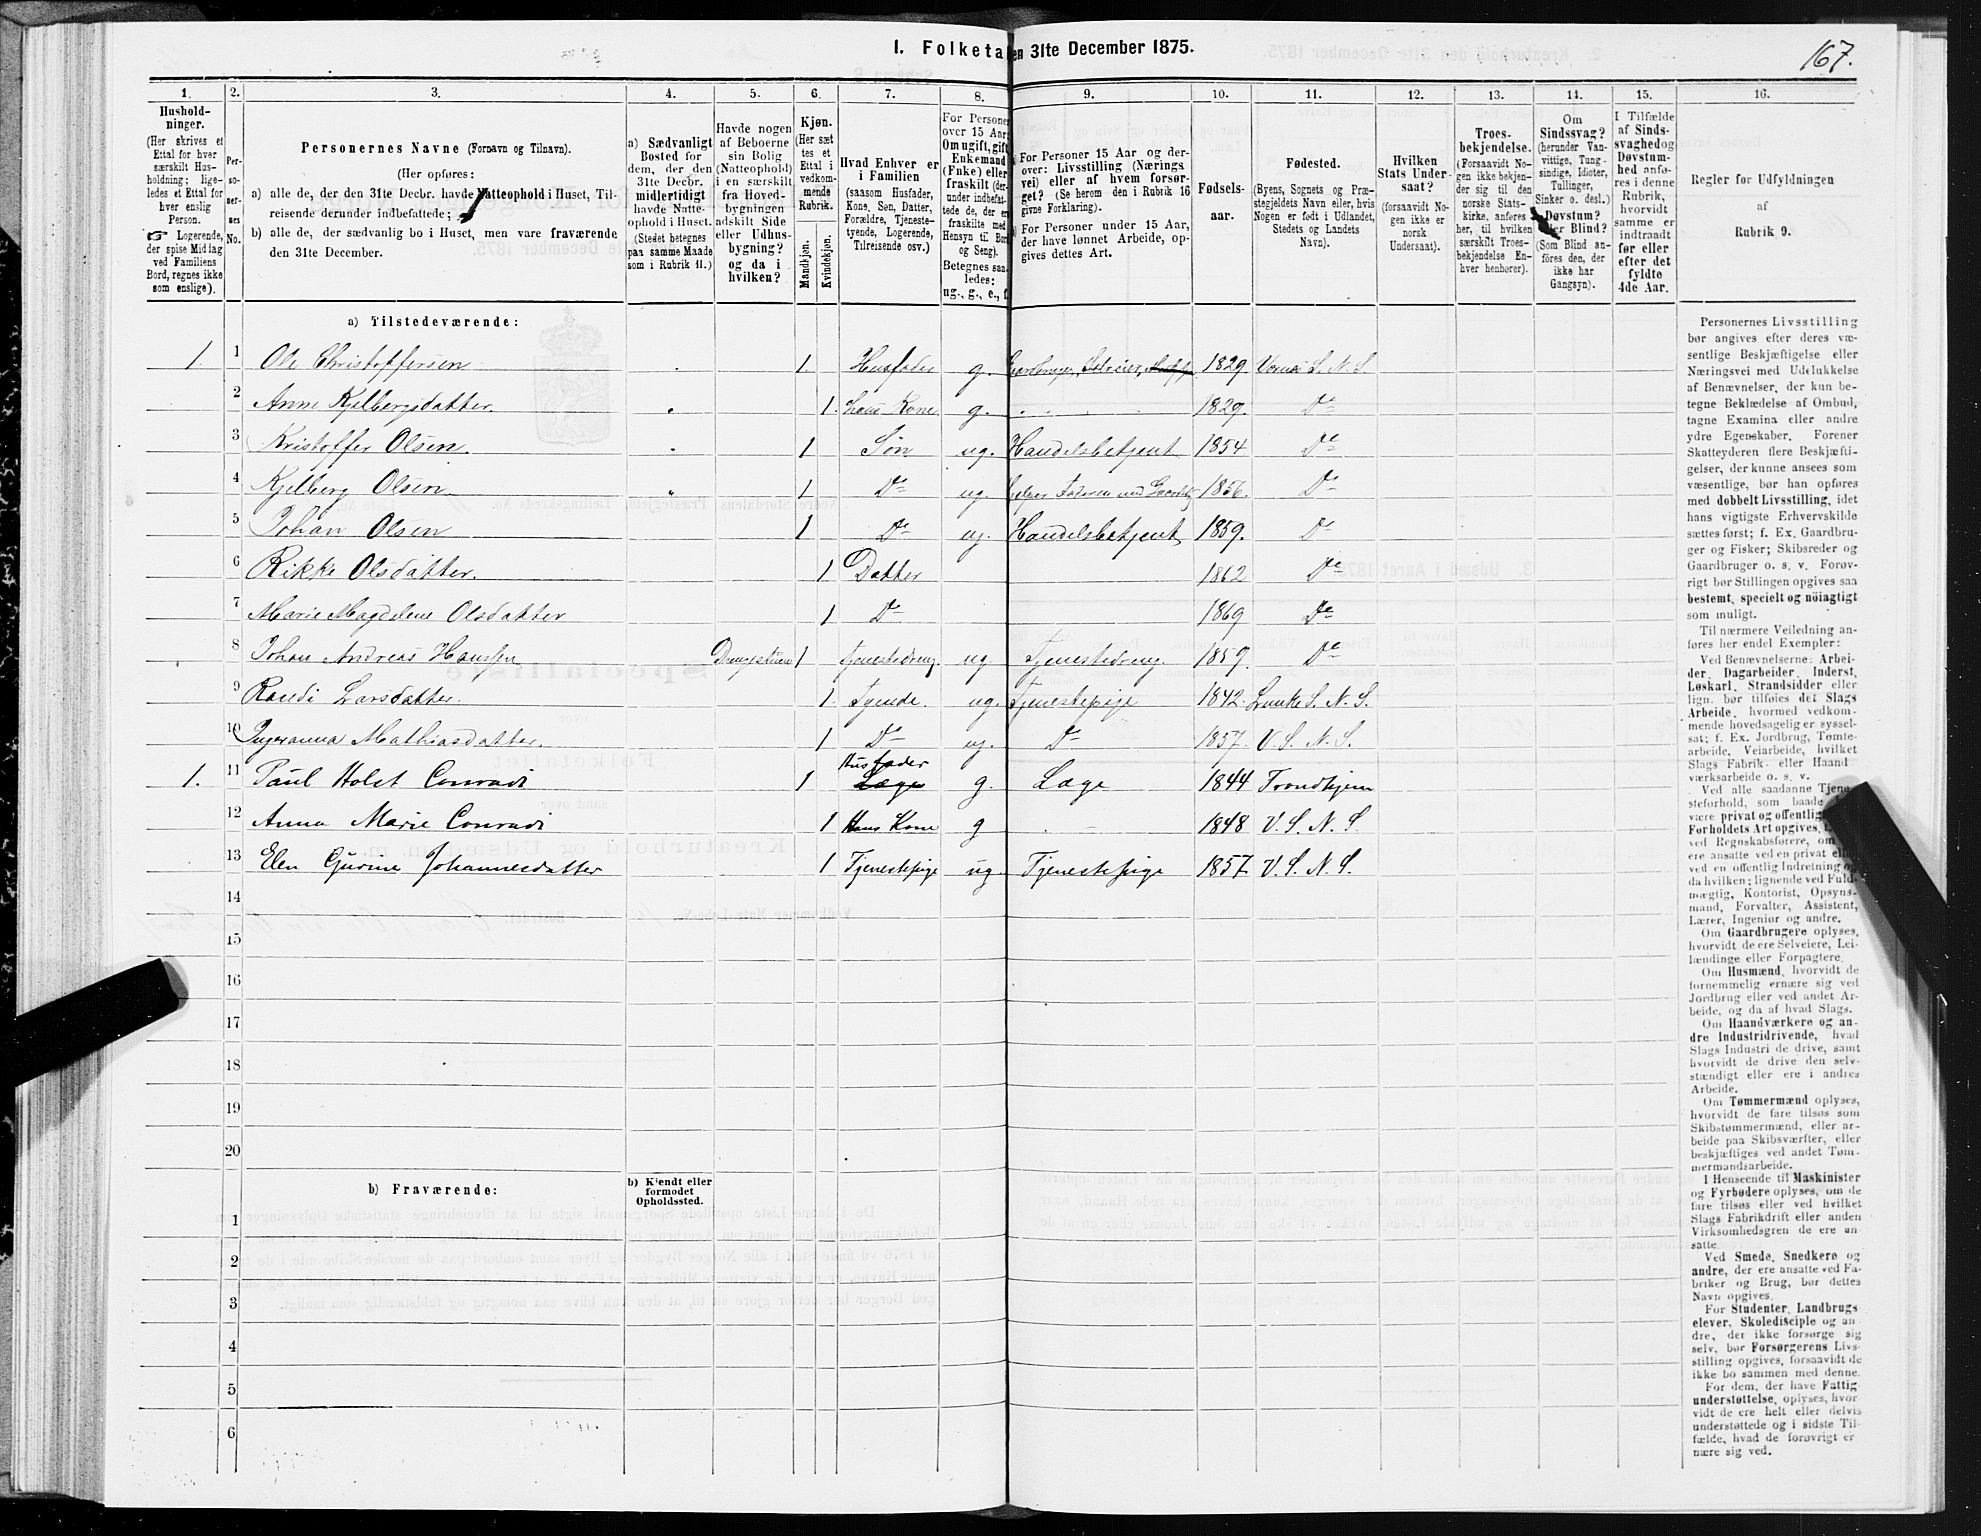 I. Folketa en 31te December 1875.
167.
1. 2. 3. 4. 5. 6. 7. 8. 9. 10. 11. 12. 13. 14. 15. 16.
Hushold-
ninger.
(Her skrives et
Ettal for hver
særskilt Hus-
holdning; lige-
ledes et Ettal for
hver enslig
Person.
☞ Logerende,
der spise Middag
ved Familiens
Bord, regnes ikke
som enslige).
Per-
so-
ner-
nes
No.
Personernes Navne (Fornavn og Tilnavn).
(Her opføres:
a) alle de, der den 31te Decbr. havde Natteophold i Huset, Til-
reisende derunder indbefattede;
b) alle de, der sædvanlig bo i Huset, men vare fraværende
den 31te December.
a) Sædvanligt
Bosted for
dem, der den
31te Decbr.
midlertidigt
havde Natte-
ophold i Huset.
(Stedet betegnes
paa samme Maade
som i Rubrik 11.)
Havde nogen
af Beboerne
sin Bolig
(Natteophold)
i en særskilt
fra Hoved-
bygningen
adskilt Side
eller Udhus-
bygning?
og da i
hvilken?
Kjøn.
(Her sæt
tes et
Ettal i
vedkom-
mende
Rubrik.
Mandkjøn.
Kvindekjøn.
Hvad Enhver er
i Familien
(saasom Husfader,
Kone, Søn, Datter,
Forældre, Tjeneste-
tyende, Logerende,
Tilreisende osv.)
For Persone
over 15 Aar
Om ugift, gift
Enkemand
(Enke) eller
fraskilt (der-
under indbefat-
tede de, der er
fraskilte med
Hensyn til Bor
og Seng).
Betegnes saa-
ledes:
ug., g., e., f.
For Personer 15 Aar og der-
over: Livsstilling (Nærings
vei) eller af hvem forsør-
get? (Se herom den i Rubrik 16
givne Forklaring).
For Personer under 15 Aar,
der have lønnet Arbeide, op-
gives dettes Art.
Fødsels-
aar.
Fødested.
(Byens, Sognets og Præ-
stegjeldets Navn eller, hvis
Nogen er født i Udlandet,
Stedets og Landets
Navn).
Hvilken
Stats Under-
saat?
(forsaavidt No-
gen ikke er
norsk
Undersaat).
Troes-
bekjendelse.
(Forsaavidt No-
gen ikke bekjen-
der sig til den
norske Stats-
kirke, anføres
her, til hvilken
særskilt Troes-
bekjendelse En-
hver henhører).
Om
Sindssvag?
(herunder Van-
vittige, Tung-
sindige, Idioter,
Tullinger,
Sinker o. desl.)
Døvstum?
eller Blind?
(Som Blind an-
føres den, der
ikke har
Gangsyn).
I Tilfælde
af Sinds-
svaghed og
Døvstum-
hed anfø-
res i denne
Rubrik,
hvorvidt
samme er
indtraadt
før eller
efter det
fyldte
4de Aar.
Regler for Udfyldningen
af
Rubrik 9.
a) Tilstedeværende:
1. 1 Ole Christoffersen 1. Husfader g. Gaardbruger, Selveier, 1829. Værnes S. N. S.
2 Anne Kjelbergsdatter. 1. hans Kone g. 1829. Do
3 Kristoffer Olsen. 1 Søn ug. Handelsbetjent 1854 Do
4 Kjelberg Olsen. 1 Do ug. 1856. Do
5 Johan Olsen 1 Do ug. Handelsbetjent 1859. Do
6 Rikke Olsdatter. 1 Datter 1862 Do
7 Marie Magdelene Olsdatter 1 Do 1869 Do
8 Johan Andreas Hanssen Drengestuen 1 Tjenestedreng. ug Tjenestedreng. 1859. Do
9 Randi Larsdatter. 1. Tjende. ug. Tjenestepige 1842. Laanke S. N. S.
10 Ingeranna Mathiasdatter. 1 Do ug. Do 1857. V. S. N. S.
Husfader
1. 11 Paul Holst Conradi 1 Læge g. Læge 1844 Trondhjem
12 Anna Marie Conradi 1 Hans Kone g 1848 V. S. N. S.
13 Elen Gurine Johannesdatter 1 Tjenestepige ug. Tjenestepige 1857. V. S. N. S.
14
15
16
17
18
19
20
b) Fraværende:
b) Kjendt eller
formodet
Opholdssted.
1
2
3
4
5
6
Personernes Livsstilling
bør angives efter deres væ-
sentlige Beskjæftigelse eller
Næringsvei med Udelukkelse
af Benævnelser, der kun be-
tegne Beklædelse af Ombud,
tagne Examina eller andre
ydre Egenskaber. Forener
Skatteyderen flere Beskjæfti-
gelser, der kunne ansees som
væsentlige, bør han opføres
med dobbelt Livsstilling, idet
hans vigtigste Erhvervskilde
sættes først; f. Ex. Gaardbru-
ger og Fisker; Skibsreder og
Gaardbruger o. s. v. Forøv-
rigt bør Stillingen opgives saa
bestemt, specielt og nøiagtigt
som muligt.
Til nærmere Veiledning an-
føres her endel Exempler:
Ved Benævnelserne: Arbei-
der, Dagarbeider, Inderst,
Løskarl, Strandsidder eller
lign. bør tilføies det Slags
Arbeide, hvormed vedkom-
mende hovedsagelig er syssel-
sat; f. Ex. Jordbrug, Tømte-
arbeide, Veiarbeide, hvilket
Slags Fabrik- eller Haand
værksarbeide o. s. v.
Ved alle saadanne Tjene
steforhold, som baade
være privat og offentlig,
Forholdets Art opgives,
ved Regnskabsførere, om
ere ansatte ved en privat ell
ved en offentlig Indretning og
da hvilken; lignende ved Fuld-
mægtig, Kontorist, Opsyns-
mand, Forvalter, Assistent,
Lærer, Ingeniør og andre.
Om Gaardbrugere oplyses,
hvorvidt de ere Selveiere, Lei-
lændinge eller Forpagtere.
Om Husmænd, hvorvidt de
fornemmelig ernære sig ved
Jordbrug eller ved andet Ar-
beide, og da af hvad Slags.
Om Haandværkere og an-
dre Industridrivende, hvad
Slags Industri de drive, samt
hvorvidt de drive den selv-
stændigt eller ere i andres
Arbeide.
Om Tømmermænd oplyses,
hvorvidt de fare tilsøs som
Skibstømmermænd, eller ar-
beide paa Skibsværfter, eller
beskjæftiges ved andet Tøm-
mermandsarbeide.
I Henseende til Maskinister
og Fyrbødere oplyses, om de
fare tilsøs eller ved hvilket
Slags Fabrikdrift eller anden
Virksomhedsgren de ere an-
satte.
Ved Smede, Snedkere og
andre, der ere ansatte ved Fa-
briker og Brug, bør dettes
Navn opgives.
For Studenter, Landbrugs
elever, Skoledisciple og an-
dre, der ikke forsørge sig
selv, bør Forsørgerens Livs-
stilling opgives, forsaavidt de
ikke bo sammen med denne.
For dem, der have Fattig
understøttelse, oplyses, hvor
vidt de ere helt eller delvis
understøttede og i sidste Til-
fælde, hvad de forøvrigt er
nære sig ved.